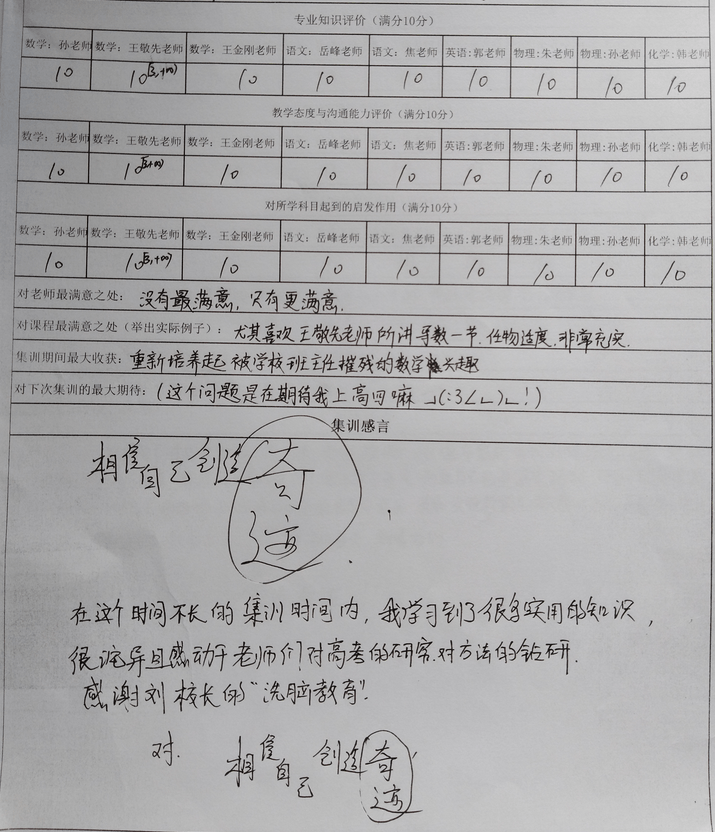 专业知识评价（满分10分）
数学：孙老师 数学：王敬先老师 数学：王金刚老师 语文：岳峰老师 语文：焦老师 英语:郭老师 物理:朱老师 物理:孙老师 化学:韩老师
10 10[3,+∞) 10 10 10 10 10 10 10
教学态度与沟通能力评价（满分10分）
数学：孙老师 数学：王敬先老师 数学：王金刚老师 语文：岳峰老师 语文：焦老师 英语:郭老师 物理:朱老师 物理:孙老师 化学:韩老师
10 10[3,+∞) 10 10 10 10 10 10 10
对所学科目起到的启发作用（满分10分）
数学：孙老师 数学：王敬先老师 数学：王金刚老师 语文：岳峰老师 语文：焦老师 英语:郭老师 物理:朱老师 物理:孙老师 化学:韩老师
10 10[3,+∞) 10 10 10 10 10 10 10
对老师最满意之处：没有最满意，只有更满意.
对课程最满意之处（举出实际例子）：尤其喜欢王敬先老师所讲导数一节.任物适度.非常充实.
集训期间最大收获：重新培养起被学校班主任摧残的数学兴趣
对下次集训的最大期待：(这个问题是在期待我上高四嘛 ┘(:3∠∟)∟!)
集训感言
相信自己创造奇迹.
在这个时间不长的集训时间内，我学习到了很多实用的知识，
很诧异且感动于老师们对高考的研究.对方法的钻研.
感谢刘校长的“洗脑教育”.
对. 相信自己创造奇迹.